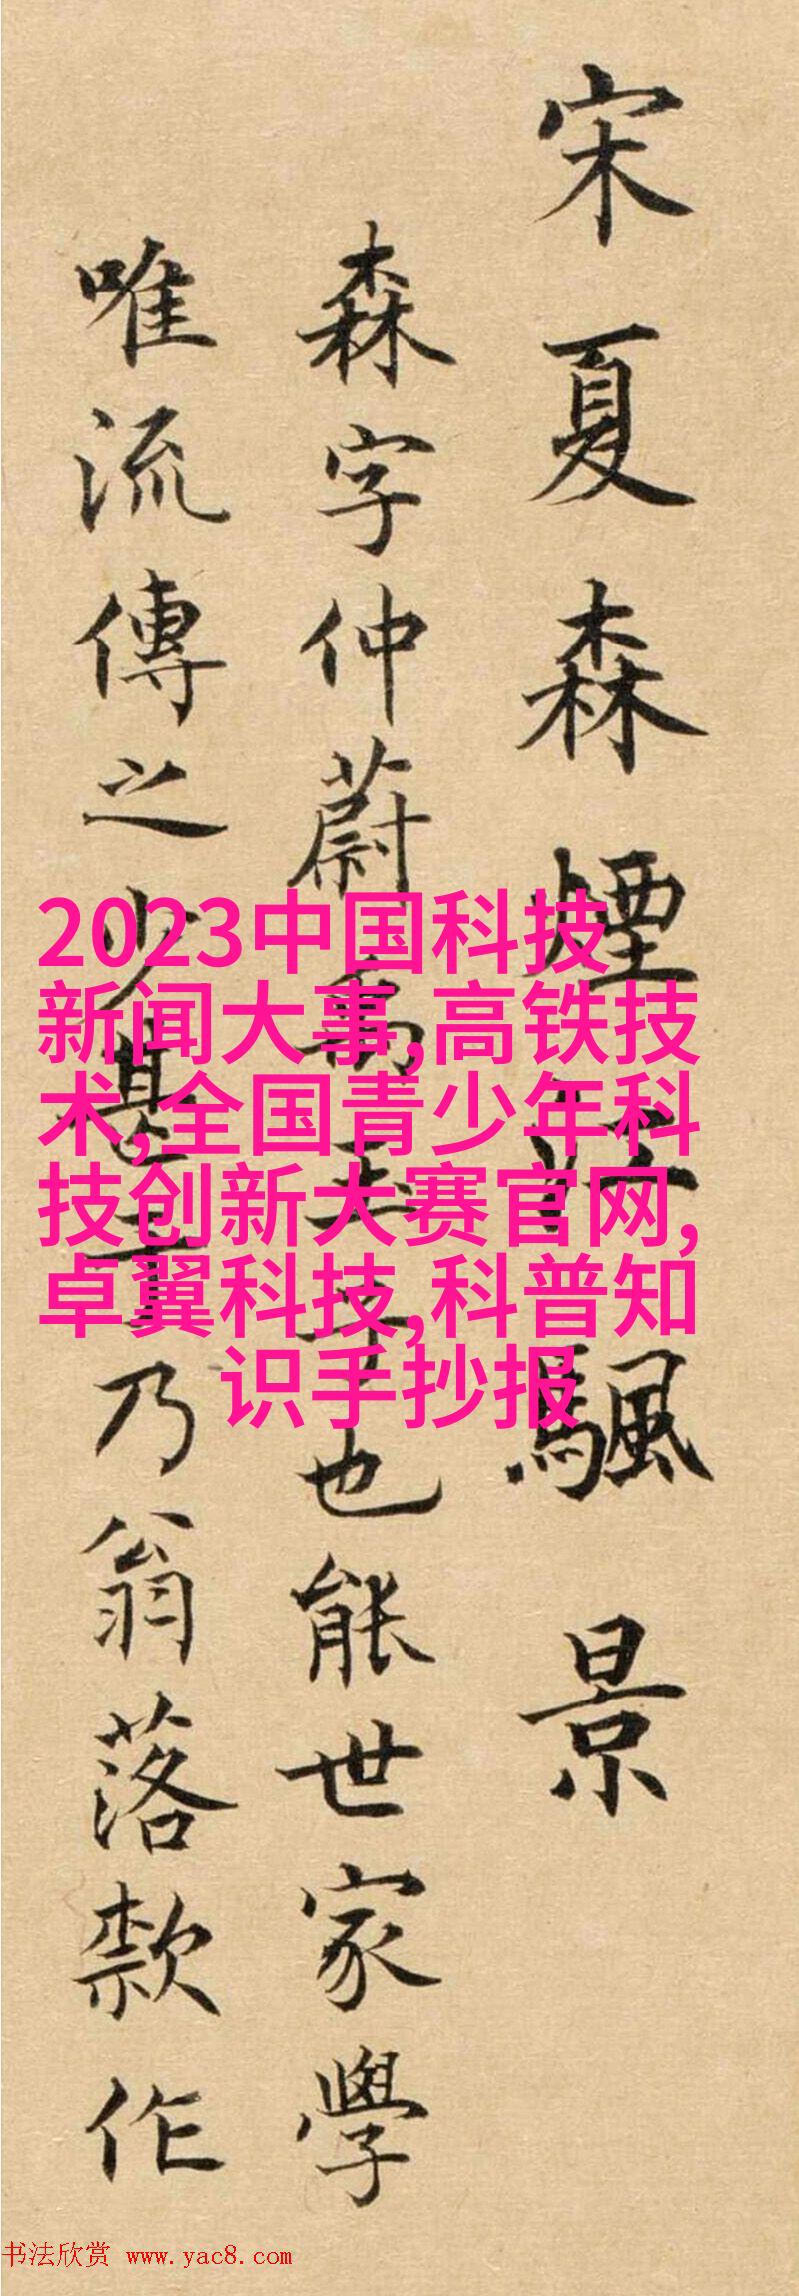 宋夏森煙江颿景
森字仲蔚禹玉子也能世家學
唯流傳之少甚乃翁落款作
2023中国科技
新闻大事,高铁技
术,全国青少年科
技创新大赛官网,
卓翼科技,科普知
识手抄报
书法欣赏 www.yac8.com